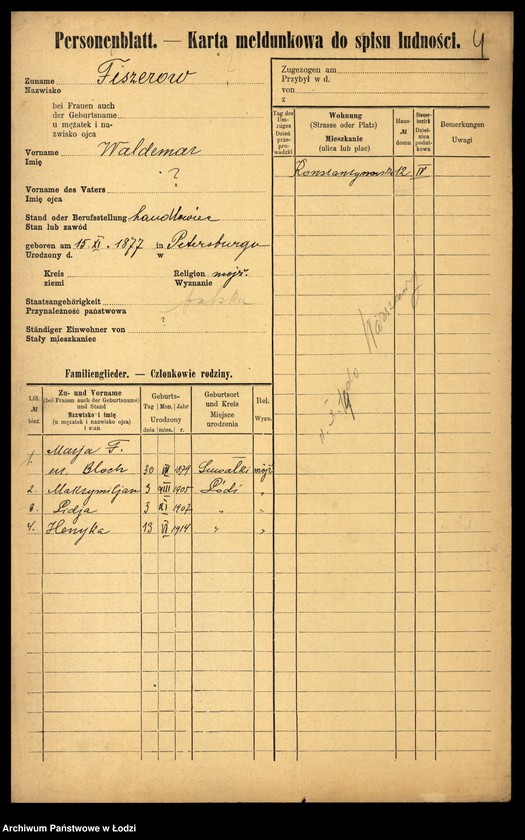 Personenblatt. — Karta meldunkowa do spisu ludności. 4
Zuname Fiszerow
Nazwisko
bei Frauen auch
der Geburtsname
u mężatek i na-
zwisko ojca
Vorname Waldemar
Imię
?
Vorname des Vaters
Imię ojca
Stand oder Berufsstellung handlowiec
Stan lub zawód
geboren am 15. XI. 1877 in Petersburgu
Urodzony d. w
Kreis Religion mojż.
ziemi Wyznanie
Staatsangehörigkeit
Przynależność państwowa
?
Ständiger Einwohner von
Stały mieszkaniec
Familienglieder. — Członkowie rodziny.
Lfd. № bież.
Zu- und Vorname
(bei Frauen auch der Geburtsname)
und Stand
Nazwisko i imię
(u mężatek i nazwisko ojca)
i stan
Geburts-
Tag Mon. Jahr
Urodzony
dnia mies. r.
Geburtsort
und Kreis
Miejsce
urodzenia
Rel.
Wyzn.
1. Marja F.
ur. Bloch 30 1879 Suwałki mojż.
2. Maksymiljan 5 VIII 1905 Łódź "
3. Lidja 3 XI 1907 " "
4. Henryka 13 VI 1914 " "
Zugezogen am
Przybył w d.
von
z
Tag des
Um-
zuges
Dzień
prze-
prowadzki
Wohnung
(Strasse oder Platz)
Mieszkanie
(ulica lub plac)
Haus-
№
domu
Steuer-
bezirk
Dziel-
nica
podat-
kowa
Bemerkungen
Uwagi
12 IV
do Warszawy
Archiwum Państwowe w Łodzi